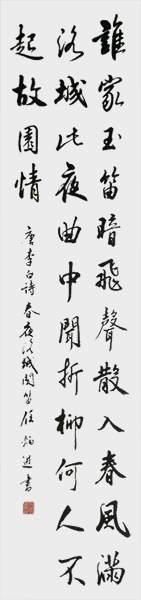 誰家玉笛暗飛聲散入春風滿
洛城此夜曲中聞折柳何人不
起故園情
唐李白詩春夜洛城聞笛任書